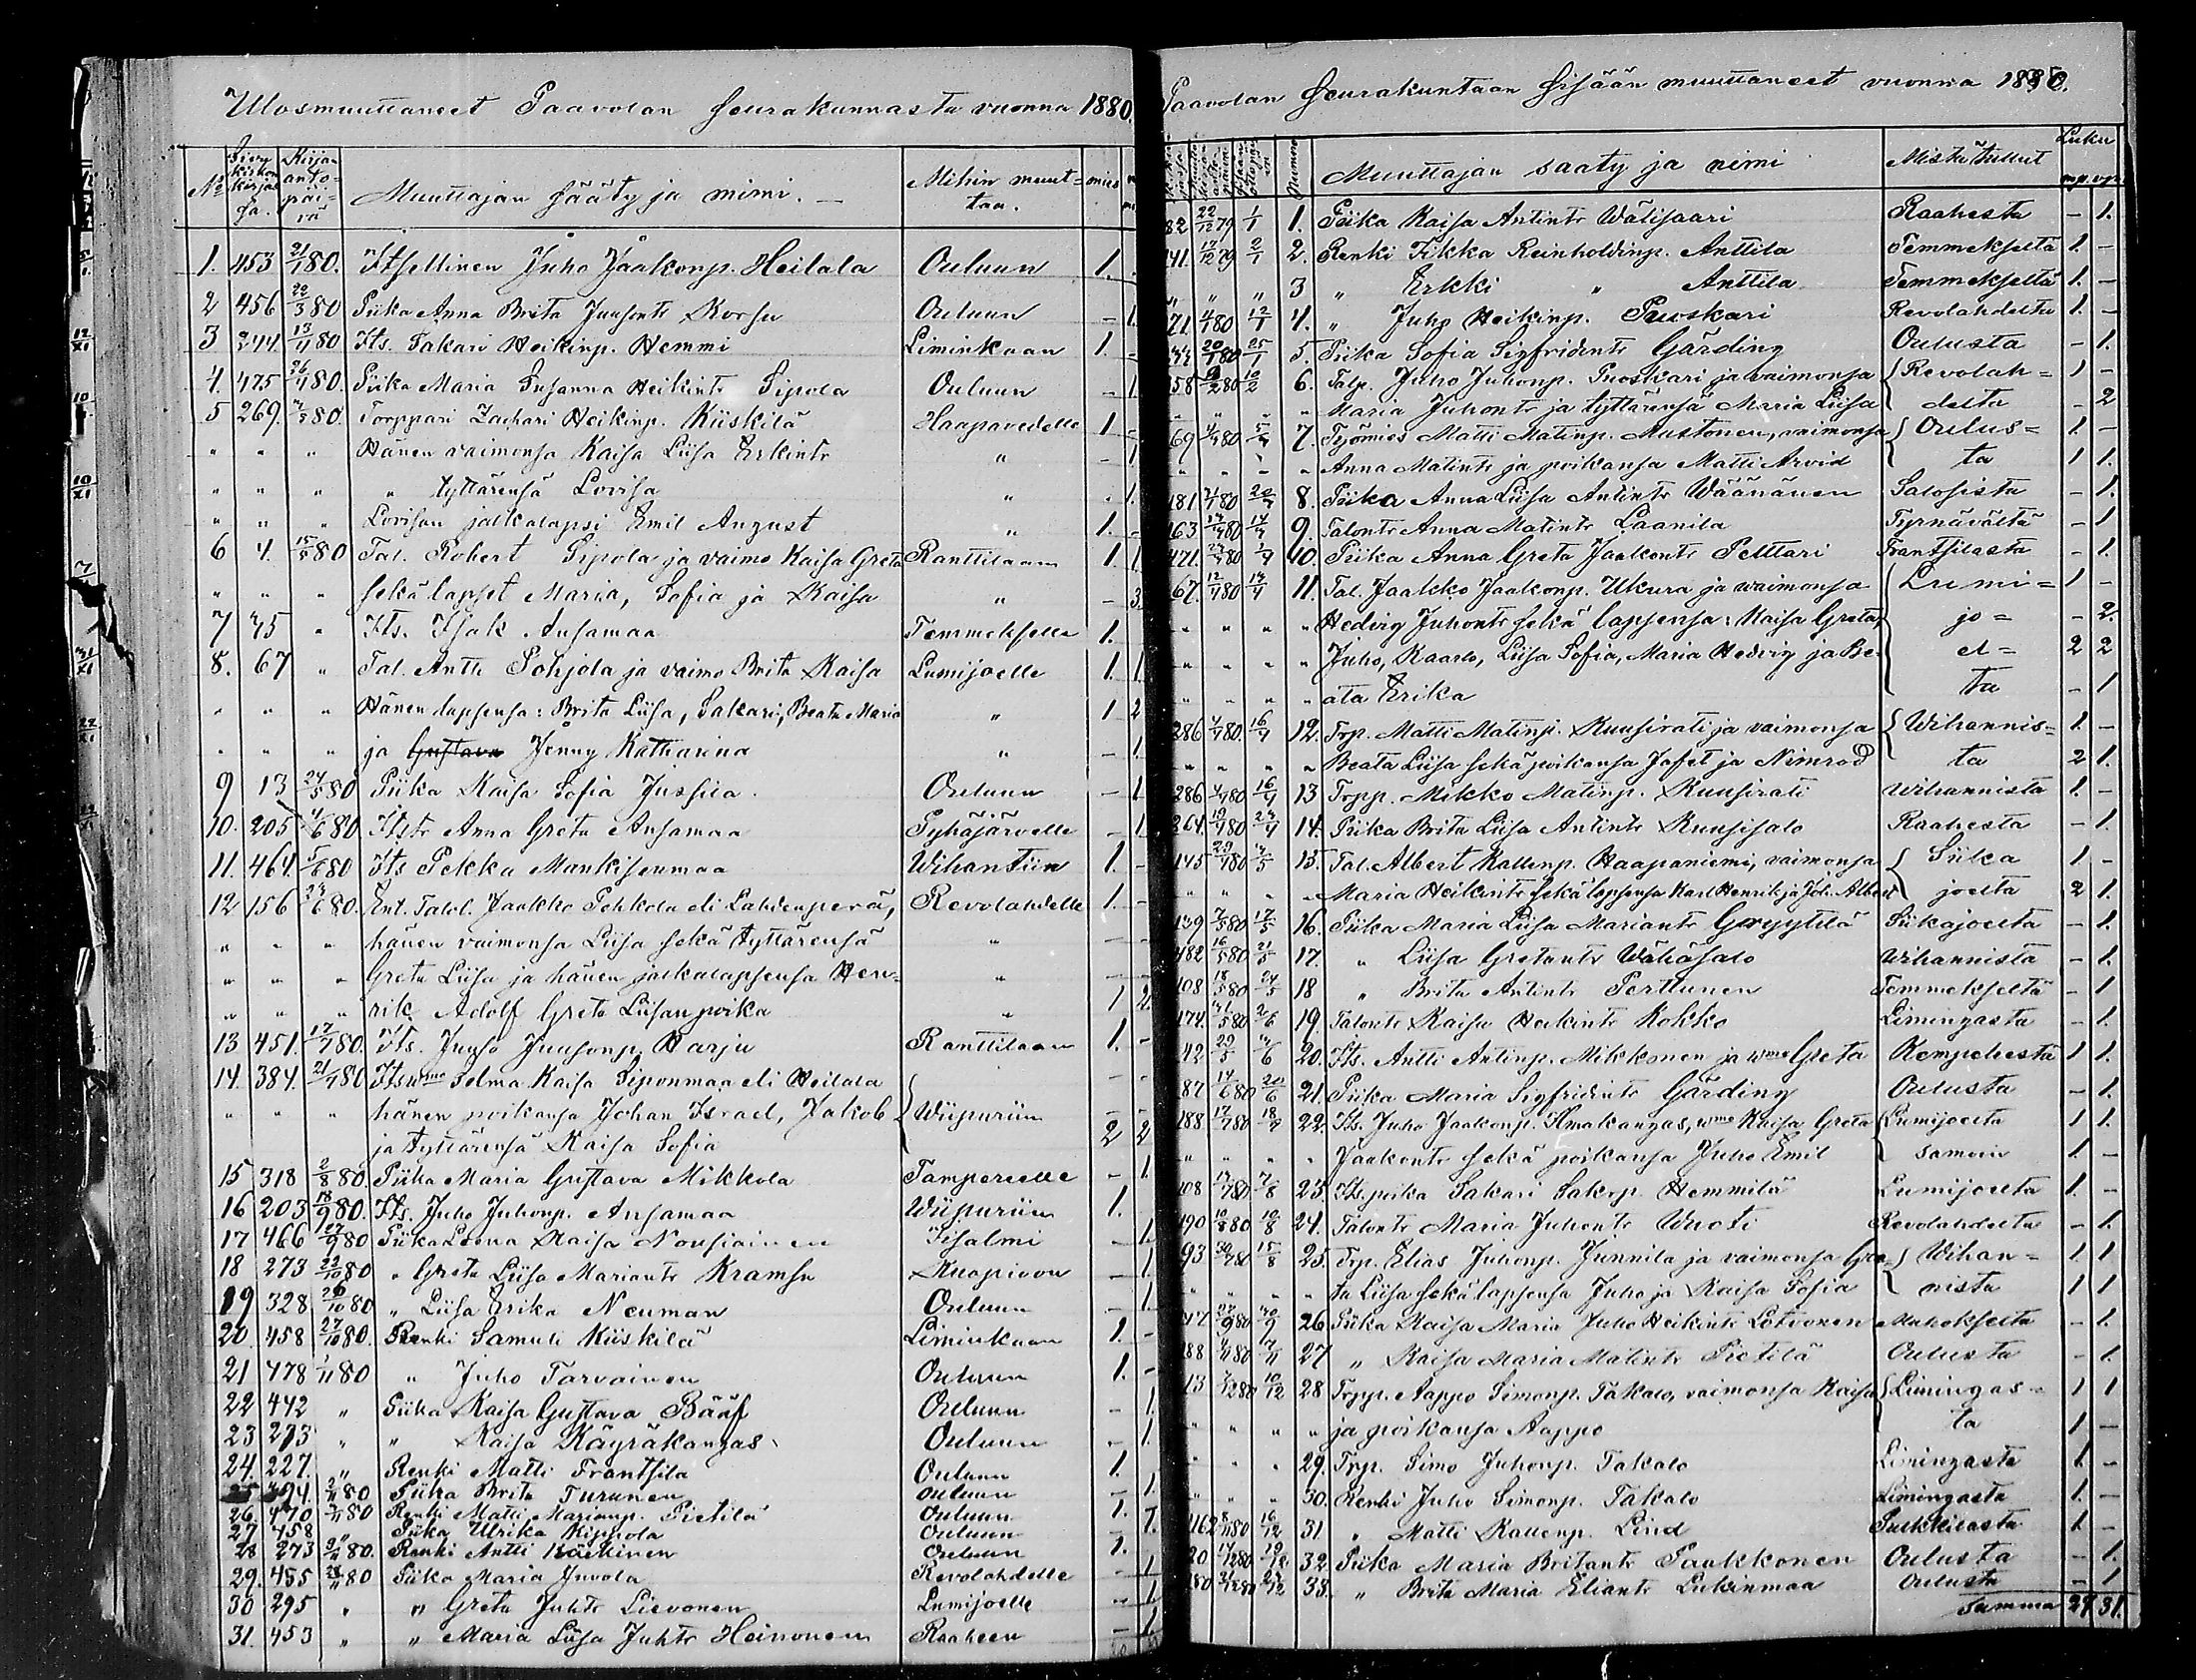 Ulosmuuttaneet Paavolan seurakunnasta vuonna 1880.
No Kirjan anto-päivä Muuttajan sääty ja nimi. Mihin muuttaa.
1. 453 21/1 80. Itsellinen Juho Jaakonp. Heilala Ouluun 1. -
2 456 22/3 80 Piika Anna Brita Juusontr Korsu Ouluun - 1.
3 244 13/4 80 Its. Sakari Heikinp. Hemmi Liminkaan 1. -
4. 475 26/4 80. Piika Maria Susanna Heikintr Sipola Ouluun - 1
5 269. 80. Torppari Zachari Heikinp. Kiiskilä Haapavedelle 1 -
" " " Hänen vaimonsa Kaisa Liisa Erkintr " - 1
" " " " tyttärensä Lovisa " - 1.
" " " Lovisan jalkalapsi Emil August " 1. -
6 4. 15/5 80 Tal. Robert Sipola ja vaimo Kaisa Greta Ranttilaan 1. 1.
" " " sekä lapset Maria, Sofia ja Kaisa " - 3.
7 75 " Its. Isak Ansamaa Temmekselle 1.
8. 67 " Tal. Antti Pohjola ja vaimo Brita Kaisa Lumijoelle 1. 1
" " " Hänen lapsensa: Brita Liisa, Sakari, Beata Maria " 1 2
" " " ja Gustava Jenny Katharina " - 1.
9 13 24/5 80 Piika Kaisa Sofia Jussila Ouluun - 1
10. 205 4/6 80 Itstr Anna Greta Ansamaa Pyhäjärvelle - 1
11. 464. 5/6 80 Its Pekka Mankisenmaa Wihantiin 1. -
12 156 23/6 80. Ent. Talol. Jaakko Pehkola eli Lahdenperä, Revolahdelle 1. -
" " " hänen vaimonsa Liisa sekä tyttärensä "
" " " Greta Liisa ja hänen jalkalapsensa Hen- "
" " " rik Adolf Greta Liisan poika " 1 2
13 451. 17/7 80. Its. Juuso Juusonp. Harju Ranttilaan 1. -
14. 384. 21/7 80 Itsvmo Selma Kaisa Siponmaa eli Heilala
" " " hänen poikansa Johan Israel, Jakob Wiipuriin
ja tyttärensä Kaisa Sofia 2 2
15 318 2/8 80. Piika Maria Gustava Mikkola Tampereelle - 1.
16 203 18/9 80. Its. Juho Juhonp. Ansamaa Wiipuriin 1.
17 466 27/9 80 Piika Leena Kaisa Nousiainen Iisalmi - 1.
18 273 22/10 80 " Greta Liisa Mariantr Kramsu Kuopioon - 1.
19 328 26/10 80 " Liisa Erika Neuman Ouluun - 1.
20 458 27/10 80. Renki Samuli Kiiskilä Liminkaan 1. -
21 478 1/11 80 " Juho Tarvainen Ouluun 1. -
22 442 " Piika Kaisa Gustava Bååf Ouluun - 1.
23 273 " " Kaisa Käyräkangas Ouluun - 1.
24. 227. " Renki Matti Frantsila Ouluun 1.
25 494. 2/11 80 Piika Brita Turunen Ouluun - 1.
26. 470 80 Renki Matti Marianp. Pietilä Ouluun 1.
27 458 " Piika Ulrika Kippola Ouluun - 1.
28 273 9/11 80. Renki Antti Räikinen Ouluun 1.
29. 455 80 Piika Maria Juvola Revolahdelle - 1
30 295 " " Greta Juhtr Lievonen Lumijoelle - 1.
31. 453 " " Maria Liisa Juhtr Heinonen Raaheen - 1.
Paavolan seurakuntaan sisään muuttaneet vuonna 1880.
Numero Muuttajan sääty ja nimi Mistä tullut Luku mp. vp.
82 22/12 79 1/1 1. Piika Kaisa Antintr Wälisaari Raahesta - 1.
141. 17/12 79 2/1 2. Renki Fikka Reinholdinp. Anttila Temmekseltä 1. -
" " " 3 " Erkki " Anttila Temmekseltä 1. -
71. 4/1 80 12/1 4. " Juho Heikinp. Puoskari Revolahdelta 1. -
20/1 80 25/1 5. Piika Sofia Sigfridintr Gärding Oulusta - 1.
58 9/2 80 10/2 6. Talp. Juho Juhonp. Puoskari ja vaimonsa Revolah= 1 -
" " " " Maria Juhontr ja tyttärensä Maria Liisa delta - 2
69 80 7. Työmies Matti Matinp. Mustonen, vaimonsa Oulus= 1. -
" " " " Anna Matintr ja poikansa Matti Arvid ta 1 1.
181 80 8. Piika Anna Liisa Antintr Wäänänen Saloisista - 1.
163 80 9. Talontr Anna Matintr Laanila Tyrnävältä - 1
471. 80 10. Piika Anna Greta Jaakontr Pelttari Frantsilasta - 1.
67. 12/4 80 11. Tal. Jaakko Jaakonp. Ukura ja vaimonsa Lumi= 1 -
" " " " Hedvig Juhontr sekä lapsensa: Kaisa Greta, jo= - 2.
" " " " Juho, Kaarlo, Liisa Sofia, Maria Hedvig ja Be- el= 2 2
" " " " ata Erika ta - 1
286 80. 16/4 12. Trp. Matti Matinp. Kuusirati ja vaimonsa Wihannis= 1. -
" " " " Beata Liisa sekä poikansa Jafet ja Nimrod ta 2 1.
286 80 16/4 13 Trpp. Mikko Matinp. Kuusirati Wihannista 1. -
264. 19/4 80 24/4 14. Piika Brita Liisa Antintr Kuusisalo Raahesta - 1.
145 29/4 80 15. Tal. Albert Kallenp. Haapaniemi, vaimonsa Siika 1 -
" " " " Maria Heikintr sekä lapsensa Karl Henrik ja Joh. Albert joelta 2 1.
139 7/5 80 17/5 16. Piika Maria Liisa Mariantr Gryytilä Siikajoelta - 1.
482 16/5 80 21/5 17. " Liisa Gretantr Wähäsalo Wihannista - 1.
108 18/5 80 24/5 18 " Brita Antintr Perttunen Temmekseltä - 1
174. 31/5 80 2/6 19. Talontr Kaisa Heikintr Kokko Limingasta - 1.
42 29/5 20. Its. Antti Antinp. Mikkonen ja wmo Greta Kempeleestä 1 1.
87 14/6 80 20/6 21. Piika Maria Sigfridintr Gärding Oulusta - 1.
188 17/7 80 18/7 22. Its. Juho Jaakonp. Ilmakangas, wmo Kaisa Greta Lumijoelta 1 1.
" " " " Jaakontr sekä poikansa Juho Emil samoin 1 -
108 17/7 80 7/8 23. Its. poika Sakari Sakrp. Hemmilä Lumijoelta 1. -
190 10/8 80 10/8 24. Talontr Maria Juhontr Wuoti Revolahdelta - 1.
93 80 15/8 25. Trp. Elias Juhonp. Junnila ja vaimonsa Gre- Wihan= 1 1
" " " " ta Liisa sekä lapsensa Juho ja Kaisa Sofia nista 1 1
80 26 Piika Kaisa Maria Juho Heikintr Lotvonen Muhokselta - 1.
188 80 27 " Kaisa Maria Matintr Pietilä Oulusta - 1.
13 80 10/12 28 Trpp. Aappo Simonp. Takalo, vaimonsa Kaisa Limingas= 1 1
" " " " ja poikansa Aappo ta 1 -
" " " 29. Trp. Simo Juhonp. Takalo Limingasta 1 -
" " " 30. Renki Juho Simonp. Takalo Limingasta 1. -
80 16/12 31. " Matti Kallenp. Lind Pulkkilasta 1 -
20 80 32. Piika Maria Britantr Paakkonen Oulusta - 1.
80 80 33. " Brita Maria Eliantr Lukinmaa Oulusta - 1
Summa 27 31.